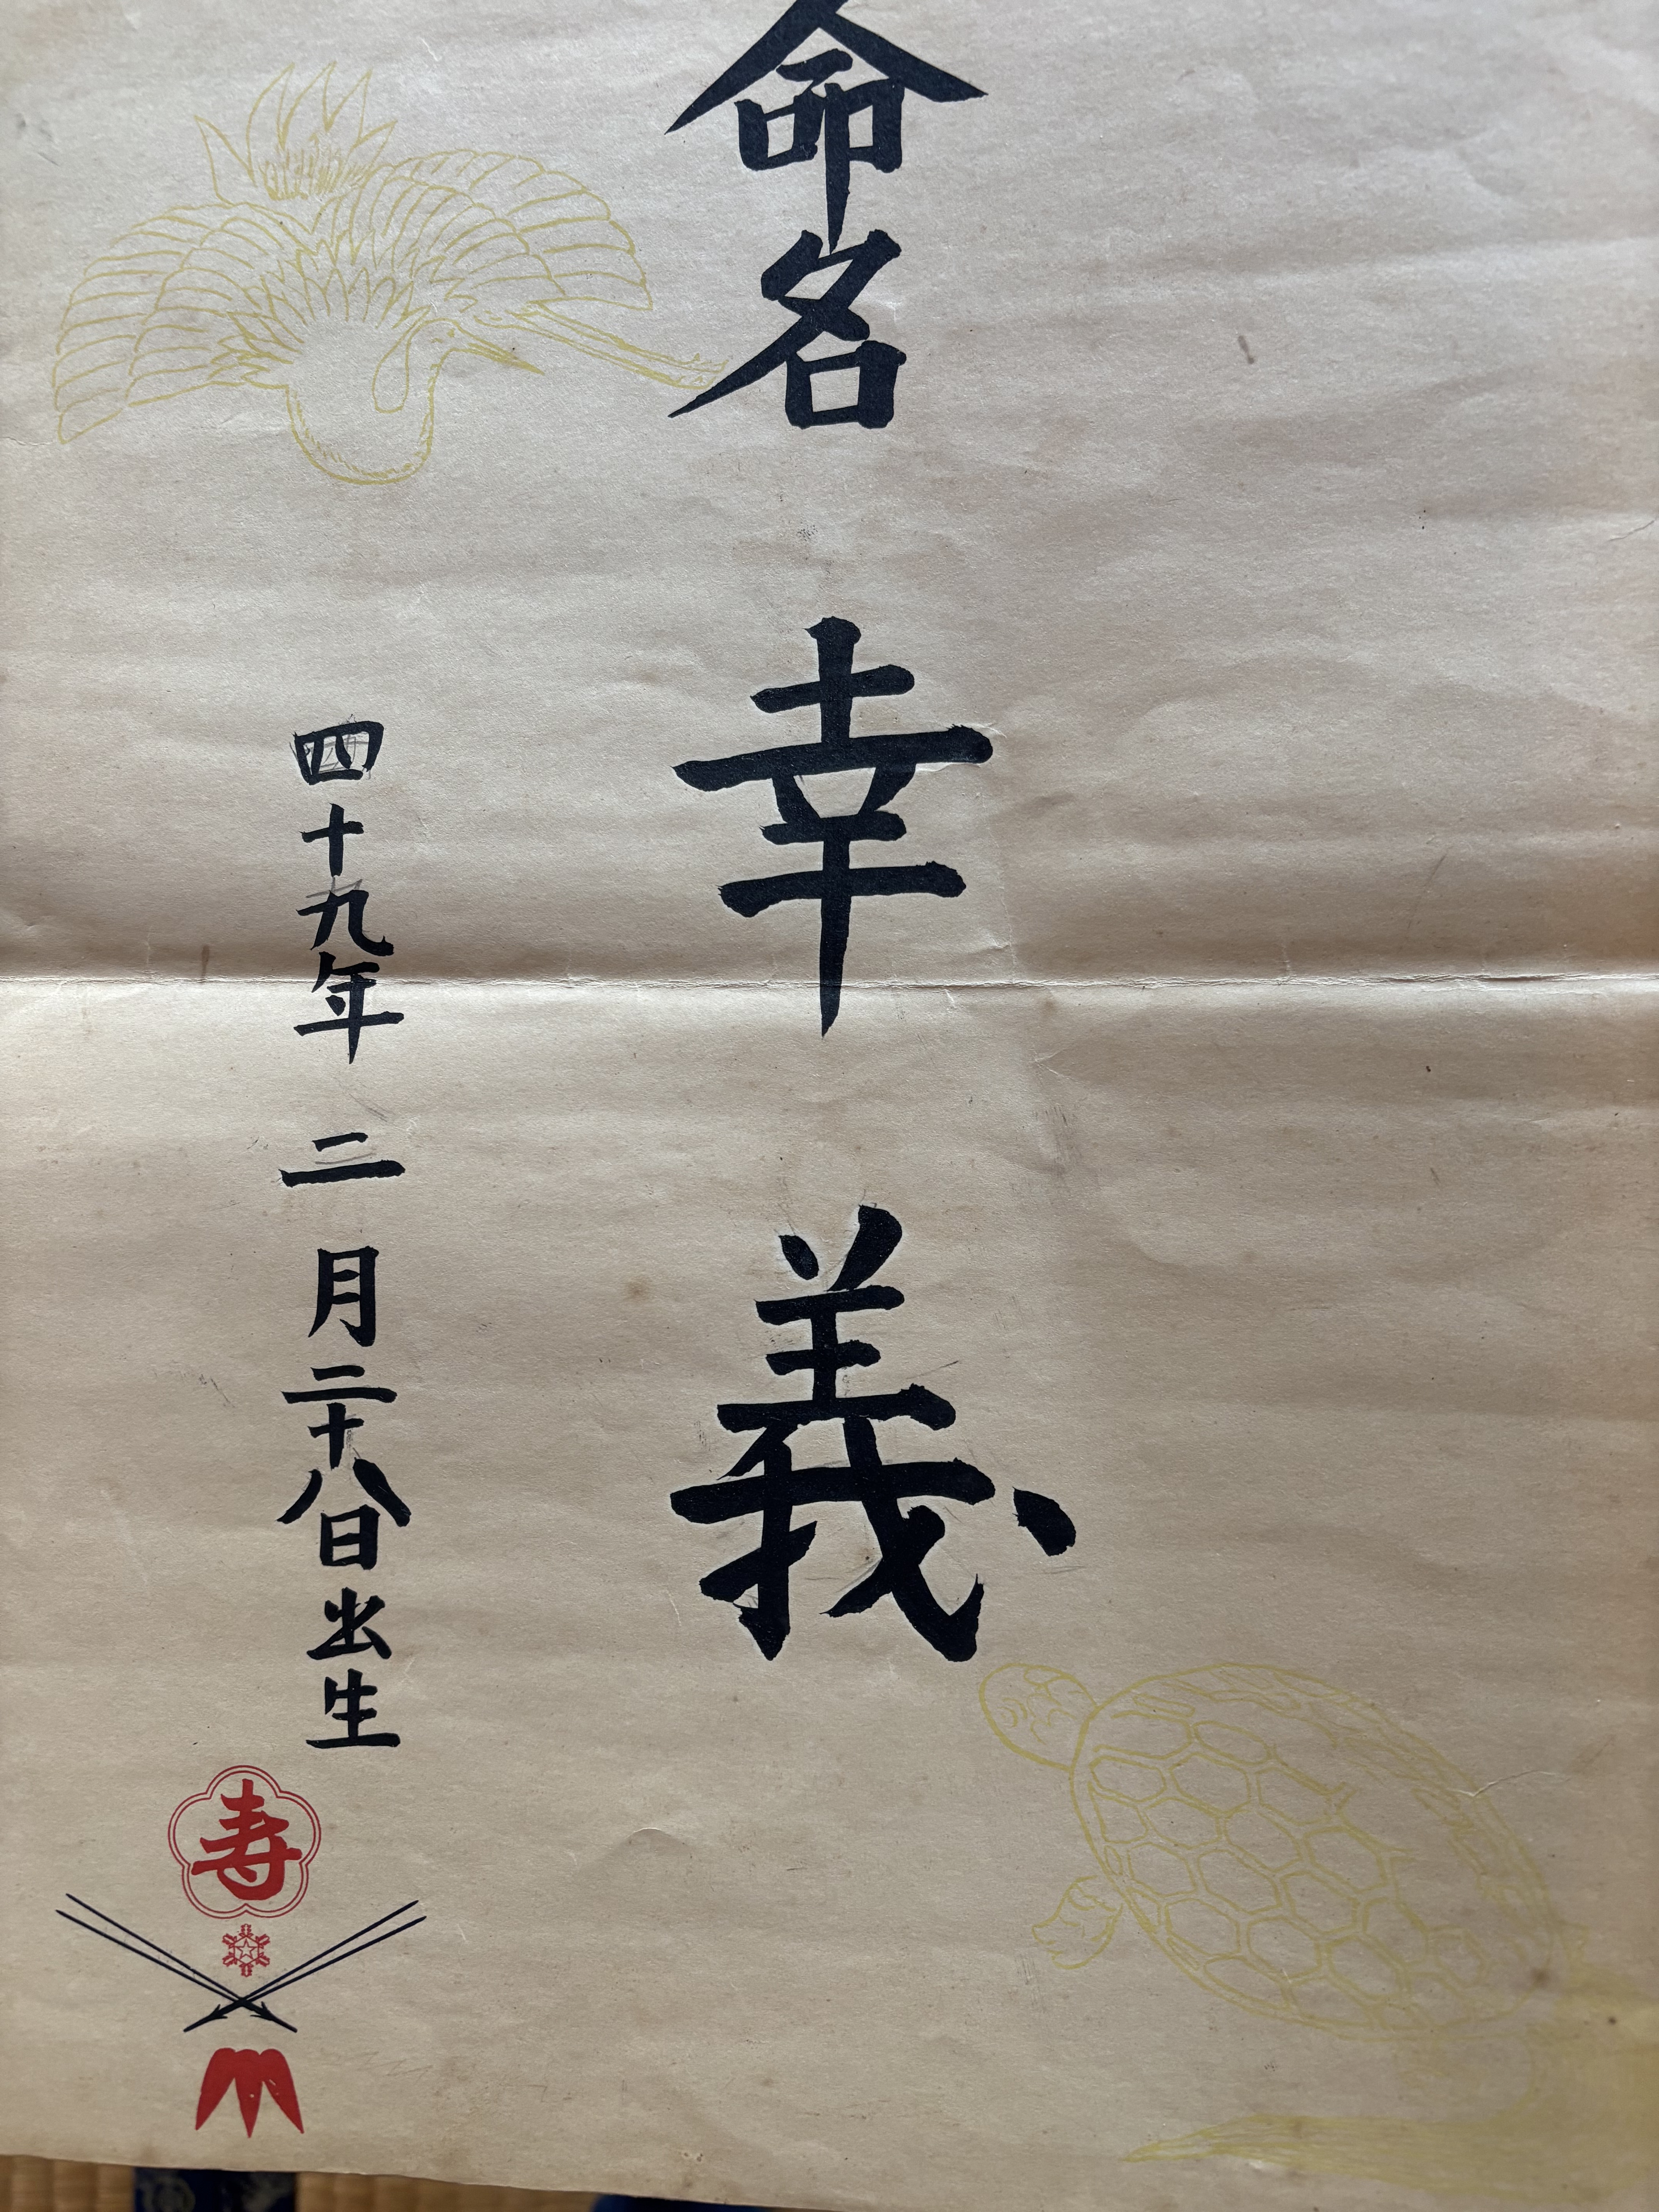 命名 幸義
四十九年 二月二十八日出生
寿